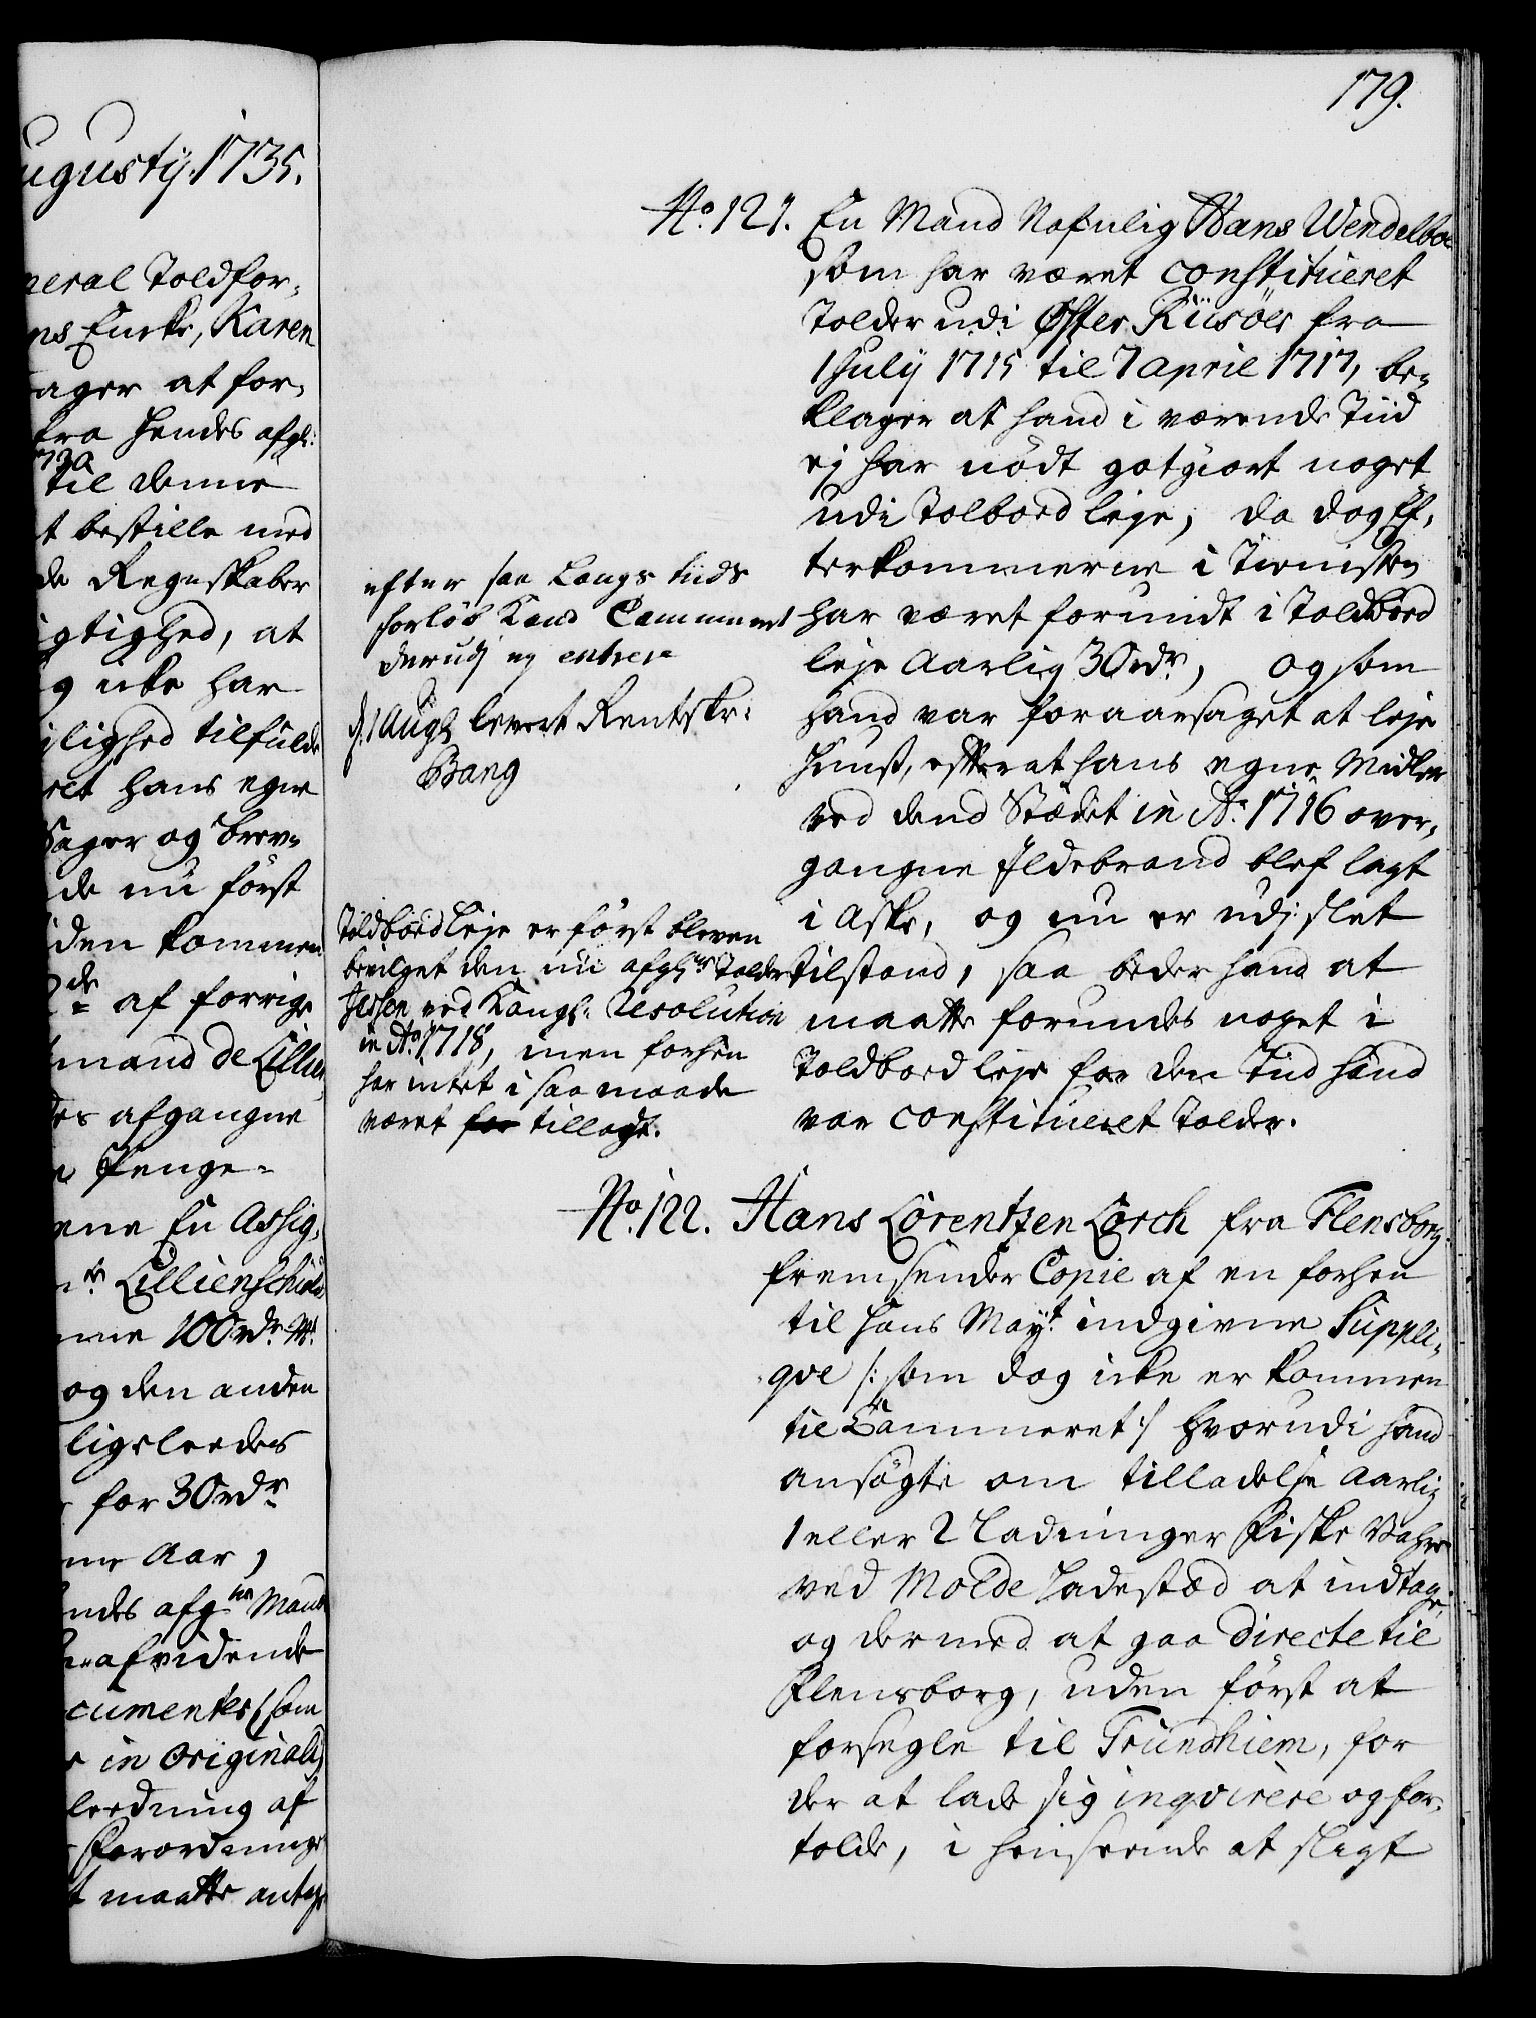 179.
ugustij 1735.
neral Toldfor,
ns Encke, Karen
ager at for,
fra hendes afgl:
1730
til denne
t bestille med
de Regnskaber
igtighed, at
g icke har
ilighed tilfulde
ret hans egne
Sager og brev,
de nu först
iden kommen
de af forrige
mand de Lillien
des afgangne
n Penge,
ene En Assig,
nr. Lillienschiold
nne 100 rdr Mt
og den anden
ligeleedes
for 30 rdr
nne Aar,
ndes afgne Mand
afvidende
cumenter (som
in Originali)
leedning af
Forordninge
t maatte antage
No. 121. En Mand Nafnlig Hans Wendelboe
som har været constitueret
Tolder udi Øster Riisöer fra
1 July 1715 til 7 april 1717, be,
klager at hand i værende Tiid
ej har nödt godtgiort noget
udi Tolboed leje, da dog Ef,
terkommerne i Tienisten
har været forundt i Toldboed
leje Aarlig 30 rdr, og som
hand var foraarsaget at leje
Huuß, efterat hans egne Midler
ved dend Stædet in Ao. 1716 over,
gangne Ildebrand blef lagt
i Aske, og nu er udj slet
tilstand, saa beder hand at
maatte forundes noget i
Toldboed leje for den Tiid hand
var constitueret Tolder.
efter saa Langs tiids
forlöb Kand Cammeret
derudj ej entrere
d. 1 Augl levert Rentskr:
Bang
Toldboed leje er först bleven
bevilget den nu afgl: Tolder
Jessen ved Kongl: Resolution
in Ao. 1718, men forhen
har intet i saa maade
været for tillagt.
No. 122. Hans Lorentzen Lorck fra Flensborg
fremsender Copie af en forhen
til Hans Mayt. indgivne Suppli,
qve /: som dog icke er kommen
til Cammeret :/ hvorudi hand
ansögte om tilladelse Aarlig
1 eller 2 Ladninger Fiske Vahre
ved Molde Ladestæd at indtage,
og dermed at gaa directe til
Flensborg, uden först at
forsegle til Trundhiem, for
der at lade sig inqvirere og for,
tolde, i henseende at sligt